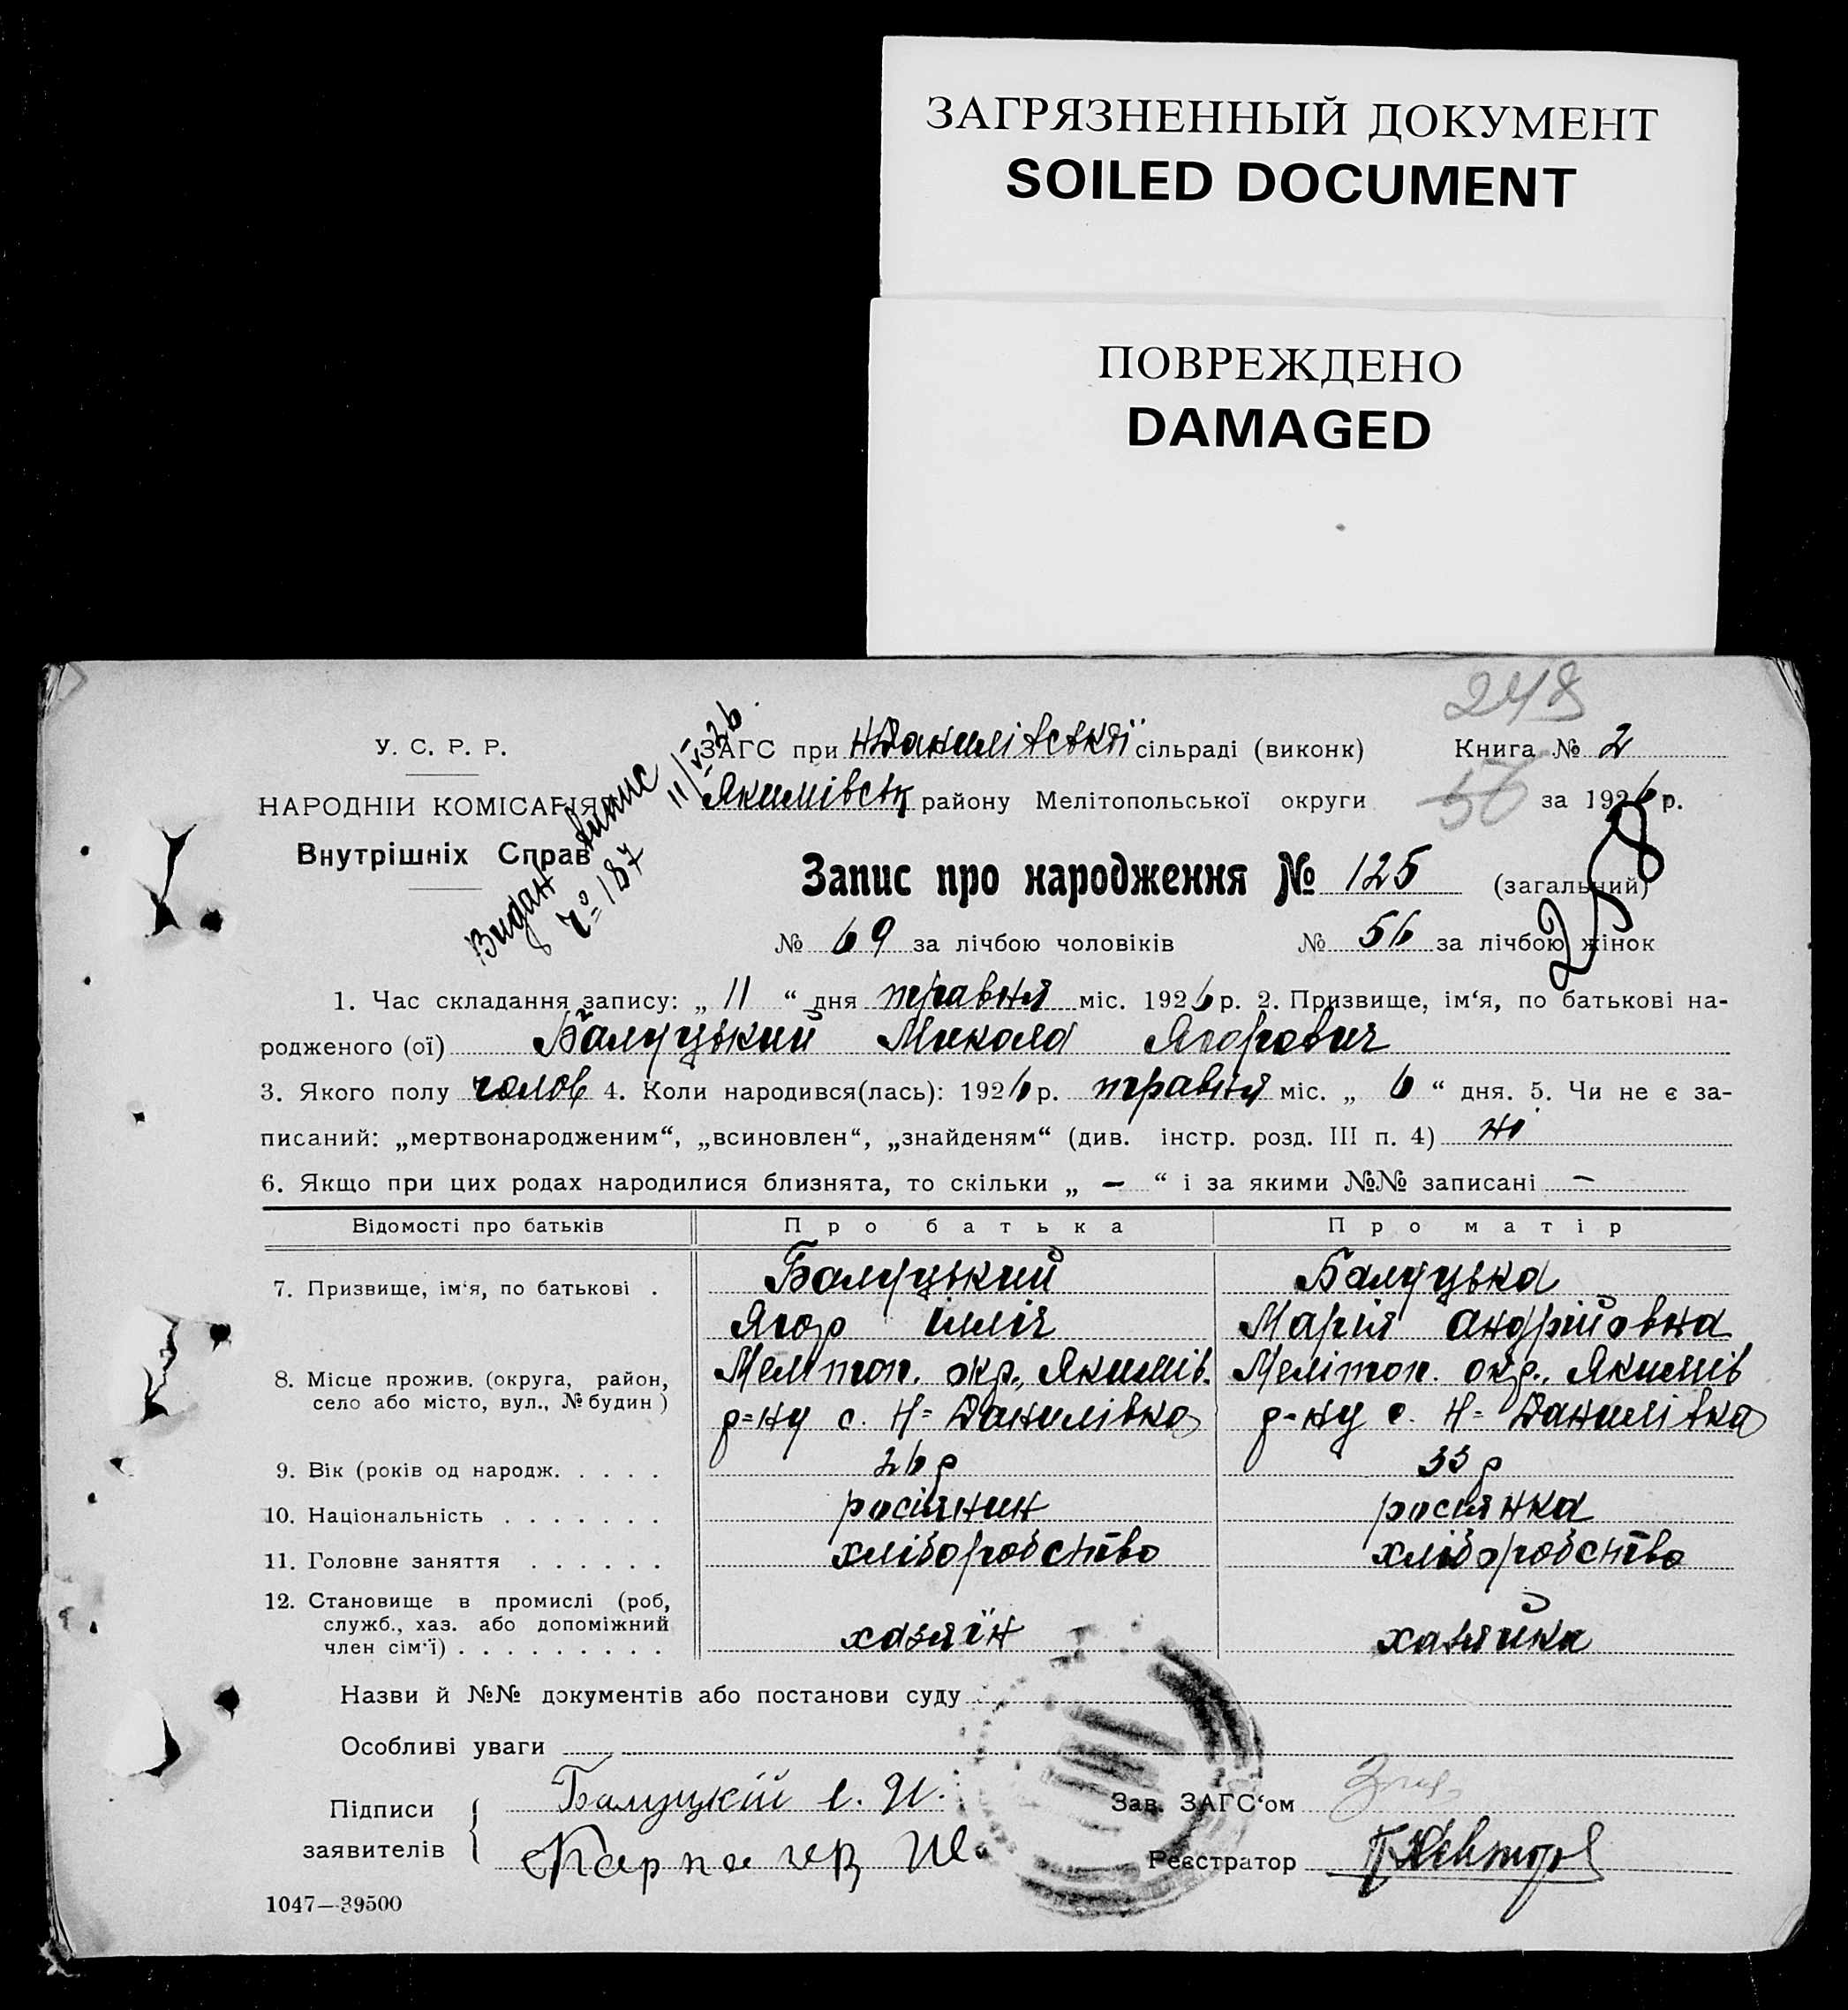 ЗАГРЯЗНЕННЫЙ ДОКУМЕНТ
SOILED DOCUMENT
ПОВРЕЖДЕНО
DAMAGED
248
У. С. Р. Р.
НАРОДНІЙ КОМІСАРІЯТ
Внутрішніх Справ
Видан витяг
№ 187
11/V-26.
ЗАГС при Н Данилівській сільраді (виконк) Книга № 2
Якимівськ району Мелітопольської округи 56 за 1926 р.
258
Запис про народження № 125 (загальний)
№ 69 за лічбою чоловіків № 56 за лічбою жінок
1. Час складання запису: „ 11 “ дня травня міс. 1926 р. 2. Призвище, ім‘я, по батькові на-
родженого (ої) Балуцький Микола Ягорович
3. Якого полу чолов 4. Коли народився(лась): 1926 р. травня міс. „ 6 “ дня. 5. Чи не є за-
писаний: „мертвонародженим“, „всиновлен“, „знайденям“ (див. інстр. розд. III п. 4) ні
6. Якщо при цих родах народилися близнята, то скільки „ — “ і за якими №№ записані —
Відомості про батьків Про батька Про матір
7. Призвище, ім‘я, по батькові . Балуцький Балуцька
Ягор Ілліч Марія Андрійовна
8. Місце прожив. (округа, район, Меліton. окр., Якимів. Мелітоп. окр., Якимів
село або місто, вул., № будин ) р=ну с. Н= Данилівка р-ну с. Н= Данилівка
9. Вік (років од народж. . . . . 26 р 33 р
10. Національність . . . . . . . росіянин росіянка
11. Головне заняття . . . . . . хліборобство хліборобство
12. Становище в промислі (роб,
служб., хаз. або допоміжний
член сім‘ї) . . . . . . . . . хазяїн хазяйка
Назви й №№ документів або постанови суду
Особливі уваги
Підписи
заявителів
Балуцкій е. И.
Зав. ЗАГС‘ом
Реєстратор
1047—39500